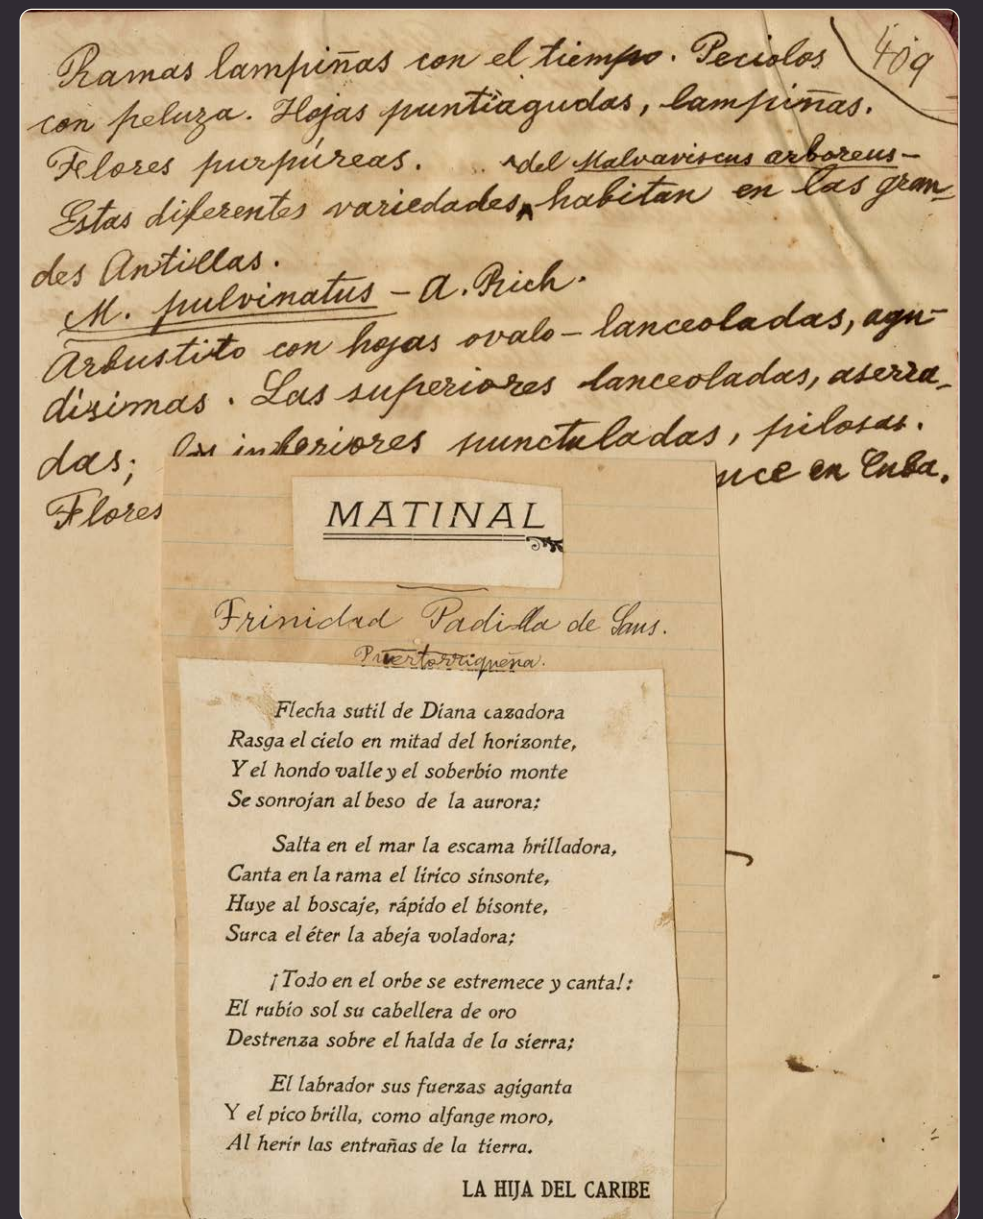 409
Ramas lampiñas con el tiempo. Peciolos
con peluza. Hojas puntiagudas, lampiñas.
Flores purpúreas. ^del Malvaviscus arboreus-
Estas diferentes variedades, habitan en las gran-
des Antillas.
M. pulvinatus - A. Rich.
Arbustito con hojas ovalo-lanceoladas, agu-
disimas. Las superiores lanceoladas, aserra-
das; las inferiores punctuladas, pilosas.
Flores en Cuba.
MATINAL
Trinidad Padilla de Sans.
Puertorriqueña.
Flecha sutil de Diana cazadora
Rasga el cielo en mitad del horizonte,
Y el hondo valle y el soberbio monte
Se sonrojan al beso de la aurora;
Salta en el mar la escama brilladora,
Canta en la rama el lírico sinsonte,
Huye al boscaje, rápido el bisonte,
Surca el éter la abeja voladora;
¡Todo en el orbe se estremece y canta!:
El rubio sol su cabellera de oro
Destrenza sobre el halda de la sierra;
El labrador sus fuerzas agiganta
Y el pico brilla, como alfange moro,
Al herir las entrañas de la tierra.
LA HIJA DEL CARIBE